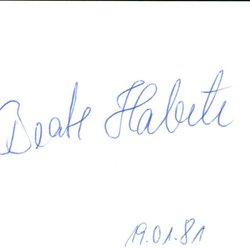 Beate Habetz
19.01.81